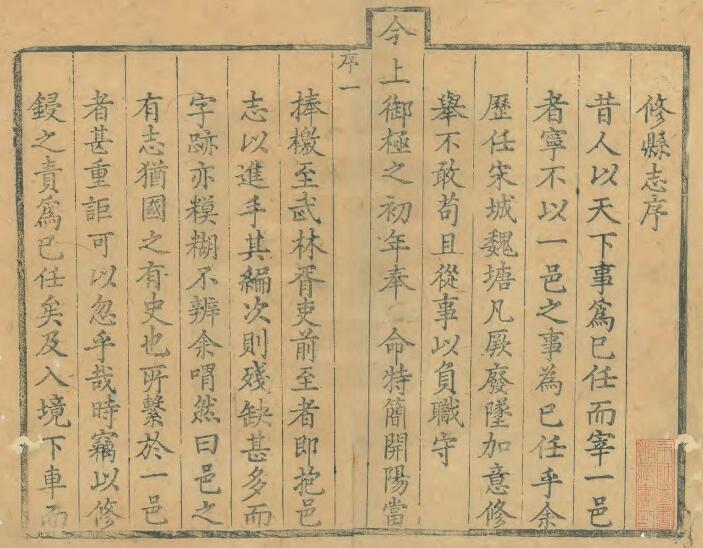 修縣志序
昔人以天下事爲己任而宰一邑
者寧不以一邑之事為己任乎余
歷任宋城魏塘凡厥廢墜加意修
舉不敢苟且從事以負職守
今上御極之初年奉 命特簡開陽當
序一
捧檄至武林胥吏前至者即抱邑
志以進手其編次則殘缺甚多而
字跡亦糢糊不辨余喟然曰邑之
有志猶國之有史也所繫於一邑
者甚重詎可以忽乎哉時竊以修
鋟之責爲己任矣及入境下車而